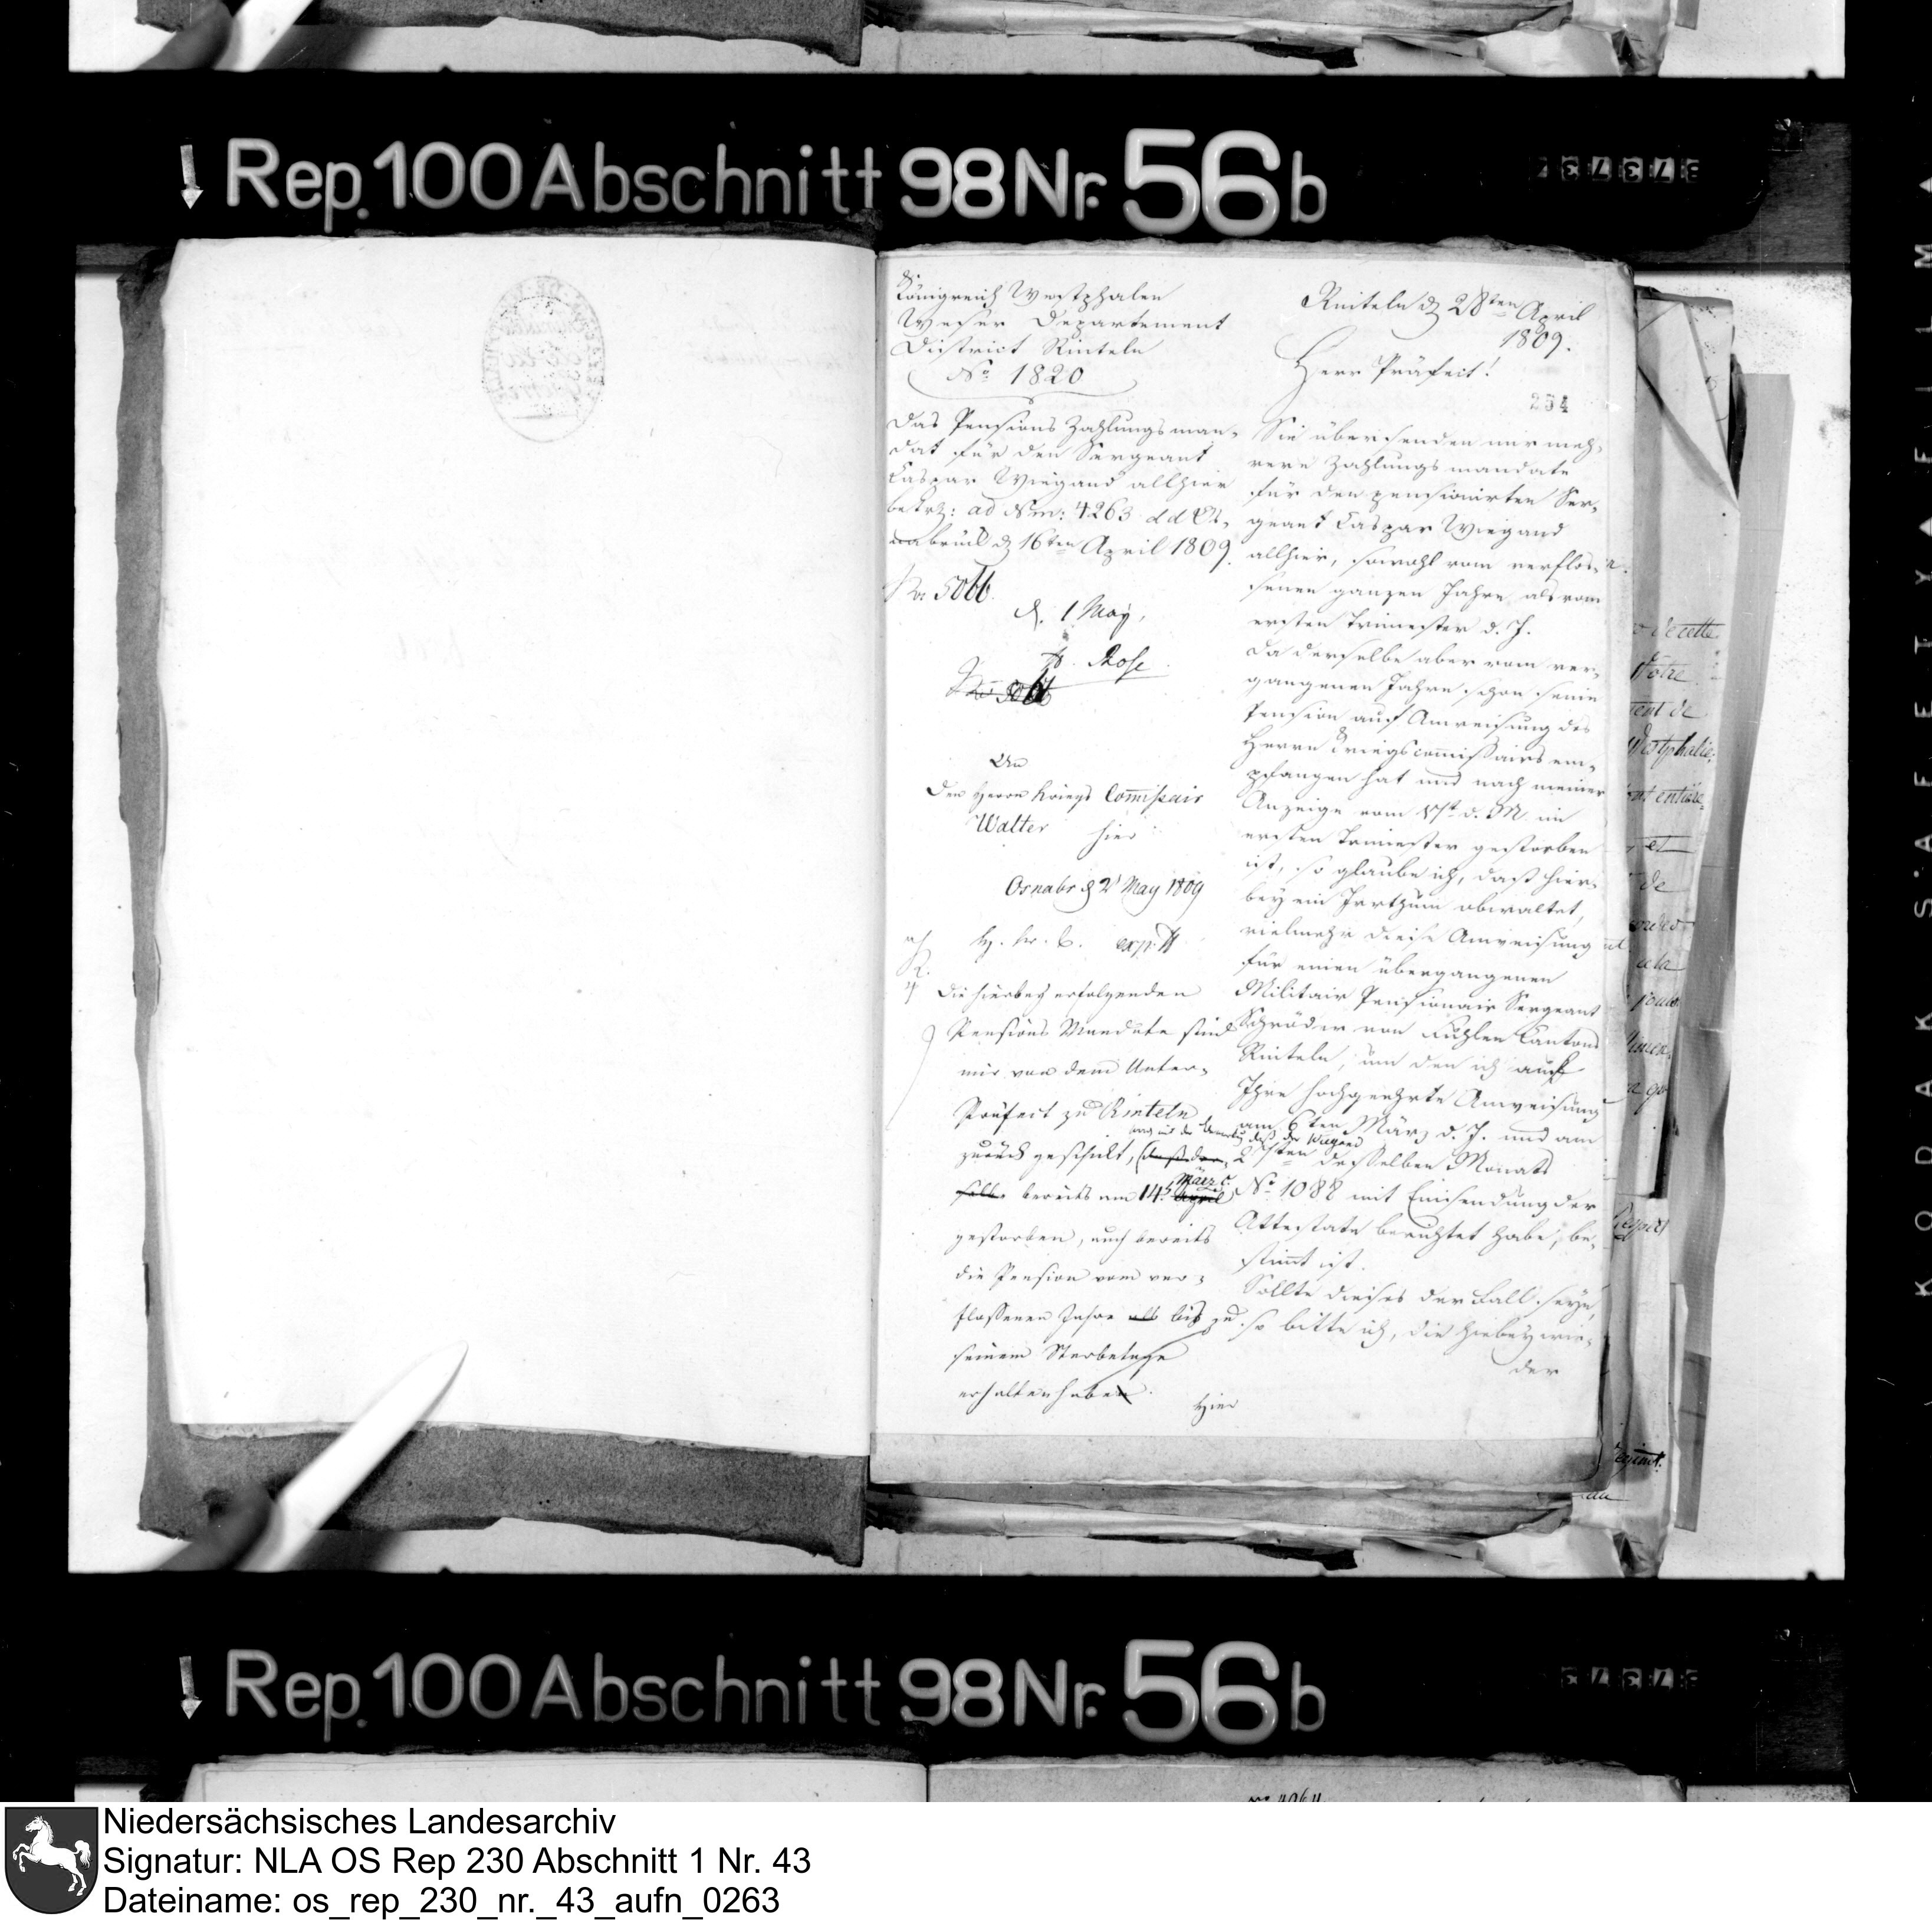 Rep. 100 Abschnitt 98 Nr. 56 b
Königreich Westphalen
Weser Departement
District Rinteln
No 1820
Rinteln d 28ten April
1809.
Herr Präfect!
254
Das Pensions Zahlungsman-
dat für den Sergeant
Caspar Wiegand allhier
betrf: ad Num: 4263 dd Os-
nabrück d 16ten April 1809.
No 5066.
d. 1 May,
Rose
No 5066
An
Den Herrn Kriegs Commissair
Walter hier
Osnabr d 2 May 1809
exp.
Die hierbey erfolgenden
Pensions Mandate sind
mir von dem Unter-
Präfect zu Rinteln
auch mit der Bemerkg daß der Wiegand
zurück geschickt, (daß der-
selbe bereits am 14. April
März c.
gestorben, auch bereits
die Pension vom ver-
flossenen Jahre als bis zu
seinem Sterbetage
erhalten haben.
Hier
Sie übersenden mir meh-
rere Zahlungsmandate
für den pensionirten Ser-
geant Caspar Wiegand
allhier, sowohl vom verflos-
senen ganzen Jahre als vom
ersten Trimester d. J.
Da derselbe aber vom ver-
gangenen Jahre schon seine
Pension auf Anweisung des
Herrn Kriegscommissairs em-
pfangen hat und nach meiner
Anzeige vom 17t d. M. im
ersten Trimester gestorben
ist, so glaube ich, daß hier-
bey ein Irrthum obwaltet,
vielmehr diese Anweisung
für einen übergangenen
Militair Pensionair Sergeant
Schröder von Fuhlen Cantons
Rinteln, um den ich auf
Ihre hochgeehrte Anweisung
am 6ten März d. J. und am
27sten desselben Monats
No 1088 mit Einsendung der
Attestate berichtet habe, be-
stimmt ist.
Sollte dieses der Fall seyn,
so bitte ich, die hiebey wie-
der
de cette
Votre
ent de
Westphalie
et
de
Rep. 100 Abschnitt 98 Nr. 56 b
KODAK SAFETY FILM
Niedersächsisches Landesarchiv
Signatur: NLA OS Rep 230 Abschnitt 1 Nr. 43
Dateiname: os_rep_230_nr._43_aufn_0263